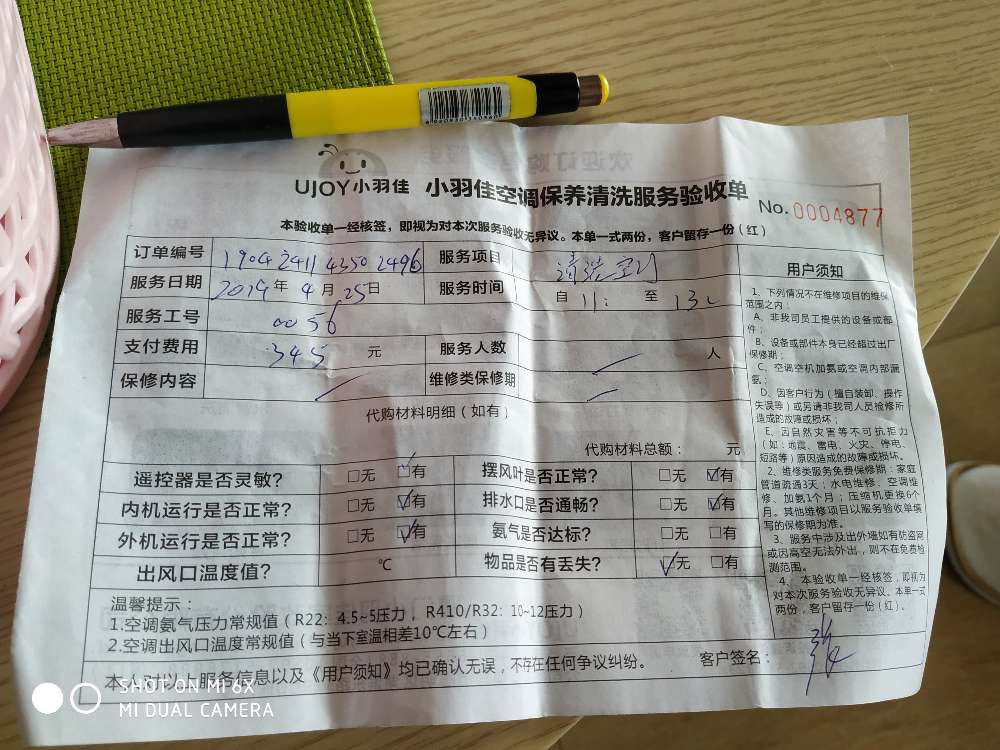 UJOY小羽佳 小羽佳空调保养清洗服务验收单
No.0004877
本验收单一经核签，即视为对本次服务验收无异议。本单一式两份，客户留存一份（红）
订单编号 1904 2411 4350 2496 服务项目 清洗空调
服务日期 2019年4月25日 服务时间 自 11: 至 13:
服务工号 0056
支付费用 345 元 服务人数 人
保修内容 维修类保修期
代购材料明细（如有）
代购材料总额： 元
遥控器是否灵敏? □无 ☑有 摆风叶是否正常? □无 ☑有
内机运行是否正常? □无 ☑有 排水口是否通畅? □无 ☑有
外机运行是否正常? □无 ☑有 氨气是否达标? □无 □有
出风口温度值? ℃ 物品是否有丢失? ☑无 □有
温馨提示：
1.空调氨气压力常规值（R22：4.5~5压力，R410/R32：10~12压力）
2.空调出风口温度常规值（与当下室温相差10℃左右）
本人对以上服务信息以及《用户须知》均已确认无误，不存在任何争议纠纷。 客户签名： 张
用户须知
1、下列情况不在维修项目的维保
范围之内：
A、非我司员工提供的设备或部
件；
B、设备或部件本身已经超过出厂
保修期；
C、空调空机加氨或空调内部漏
氨；
D、因客户行为（擅自装卸、操作
失误等）或另请非我司人员检修所
造成的故障或损坏；
E、因自然灾害等不可抗拒力
（如：地震、雷电、火灾、停电、
短路等）原因造成的故障或损坏。
2、维修类服务免费保修期：家庭
管道疏通3天；水电维修、空调维
修、加氨1个月；压缩机更换6个
月。其他维修项目以服务验收单填
写的保修期为准。
3、服务中涉及出外墙如有防盗网
或因高空无法外出，则不在免费检
测范围。
4、本验收单一经核签，即视为
对本次服务验收无异议。本单一式
两份，客户留存一份（红）。
SHOT ON MI 6X
MI DUAL CAMERA